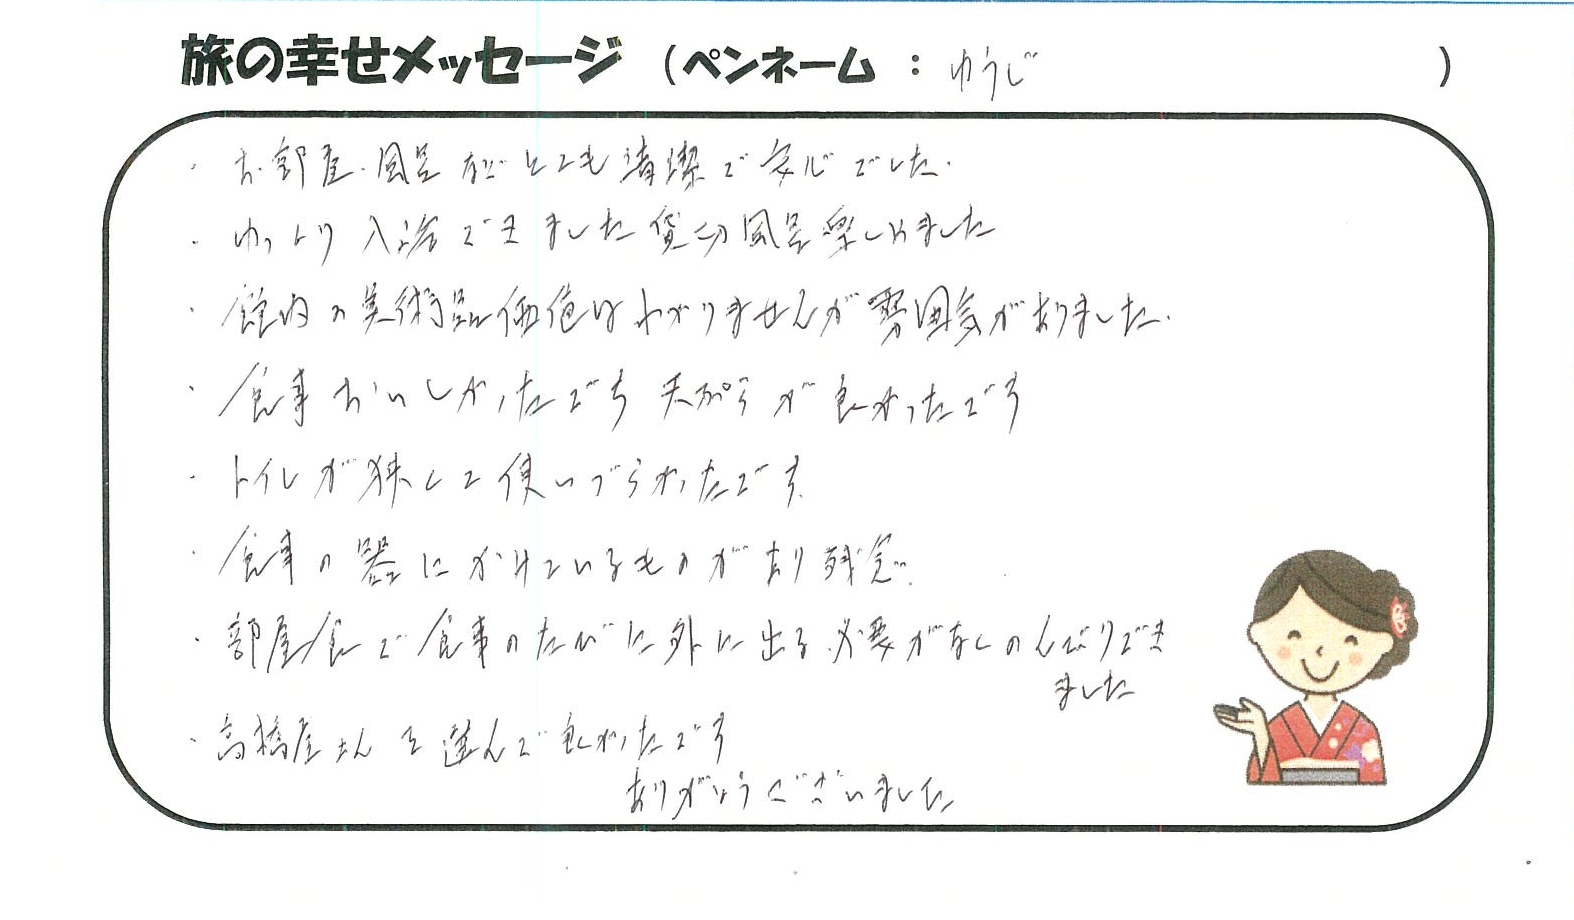 旅の幸せメッセージ (ペンネーム : ゆうじ )
・お部屋・風呂などとても清潔で安心でした.
・ゆっくり入浴できました貸切風呂楽しめました
・館内の美術品価値はわかりませんが雰囲気がありました.
・食事おいしかったです 天ぷらが良かったです
・トイレが狭くて使いづらかったです.
・食事の器にかけているものがあり残念.
・部屋食で食事のたびに外に出る必要がなくのんびりでき
ました
・高橋屋さんを選んで良かったです
ありがとうございました